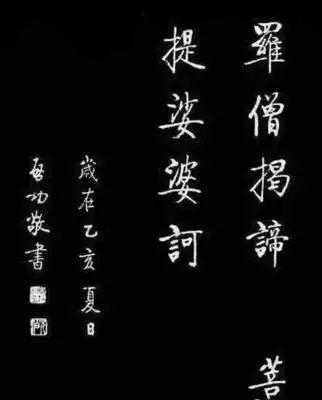 羅僧揭諦 菩
提娑婆訶
歲在乙亥夏日
启功敬書